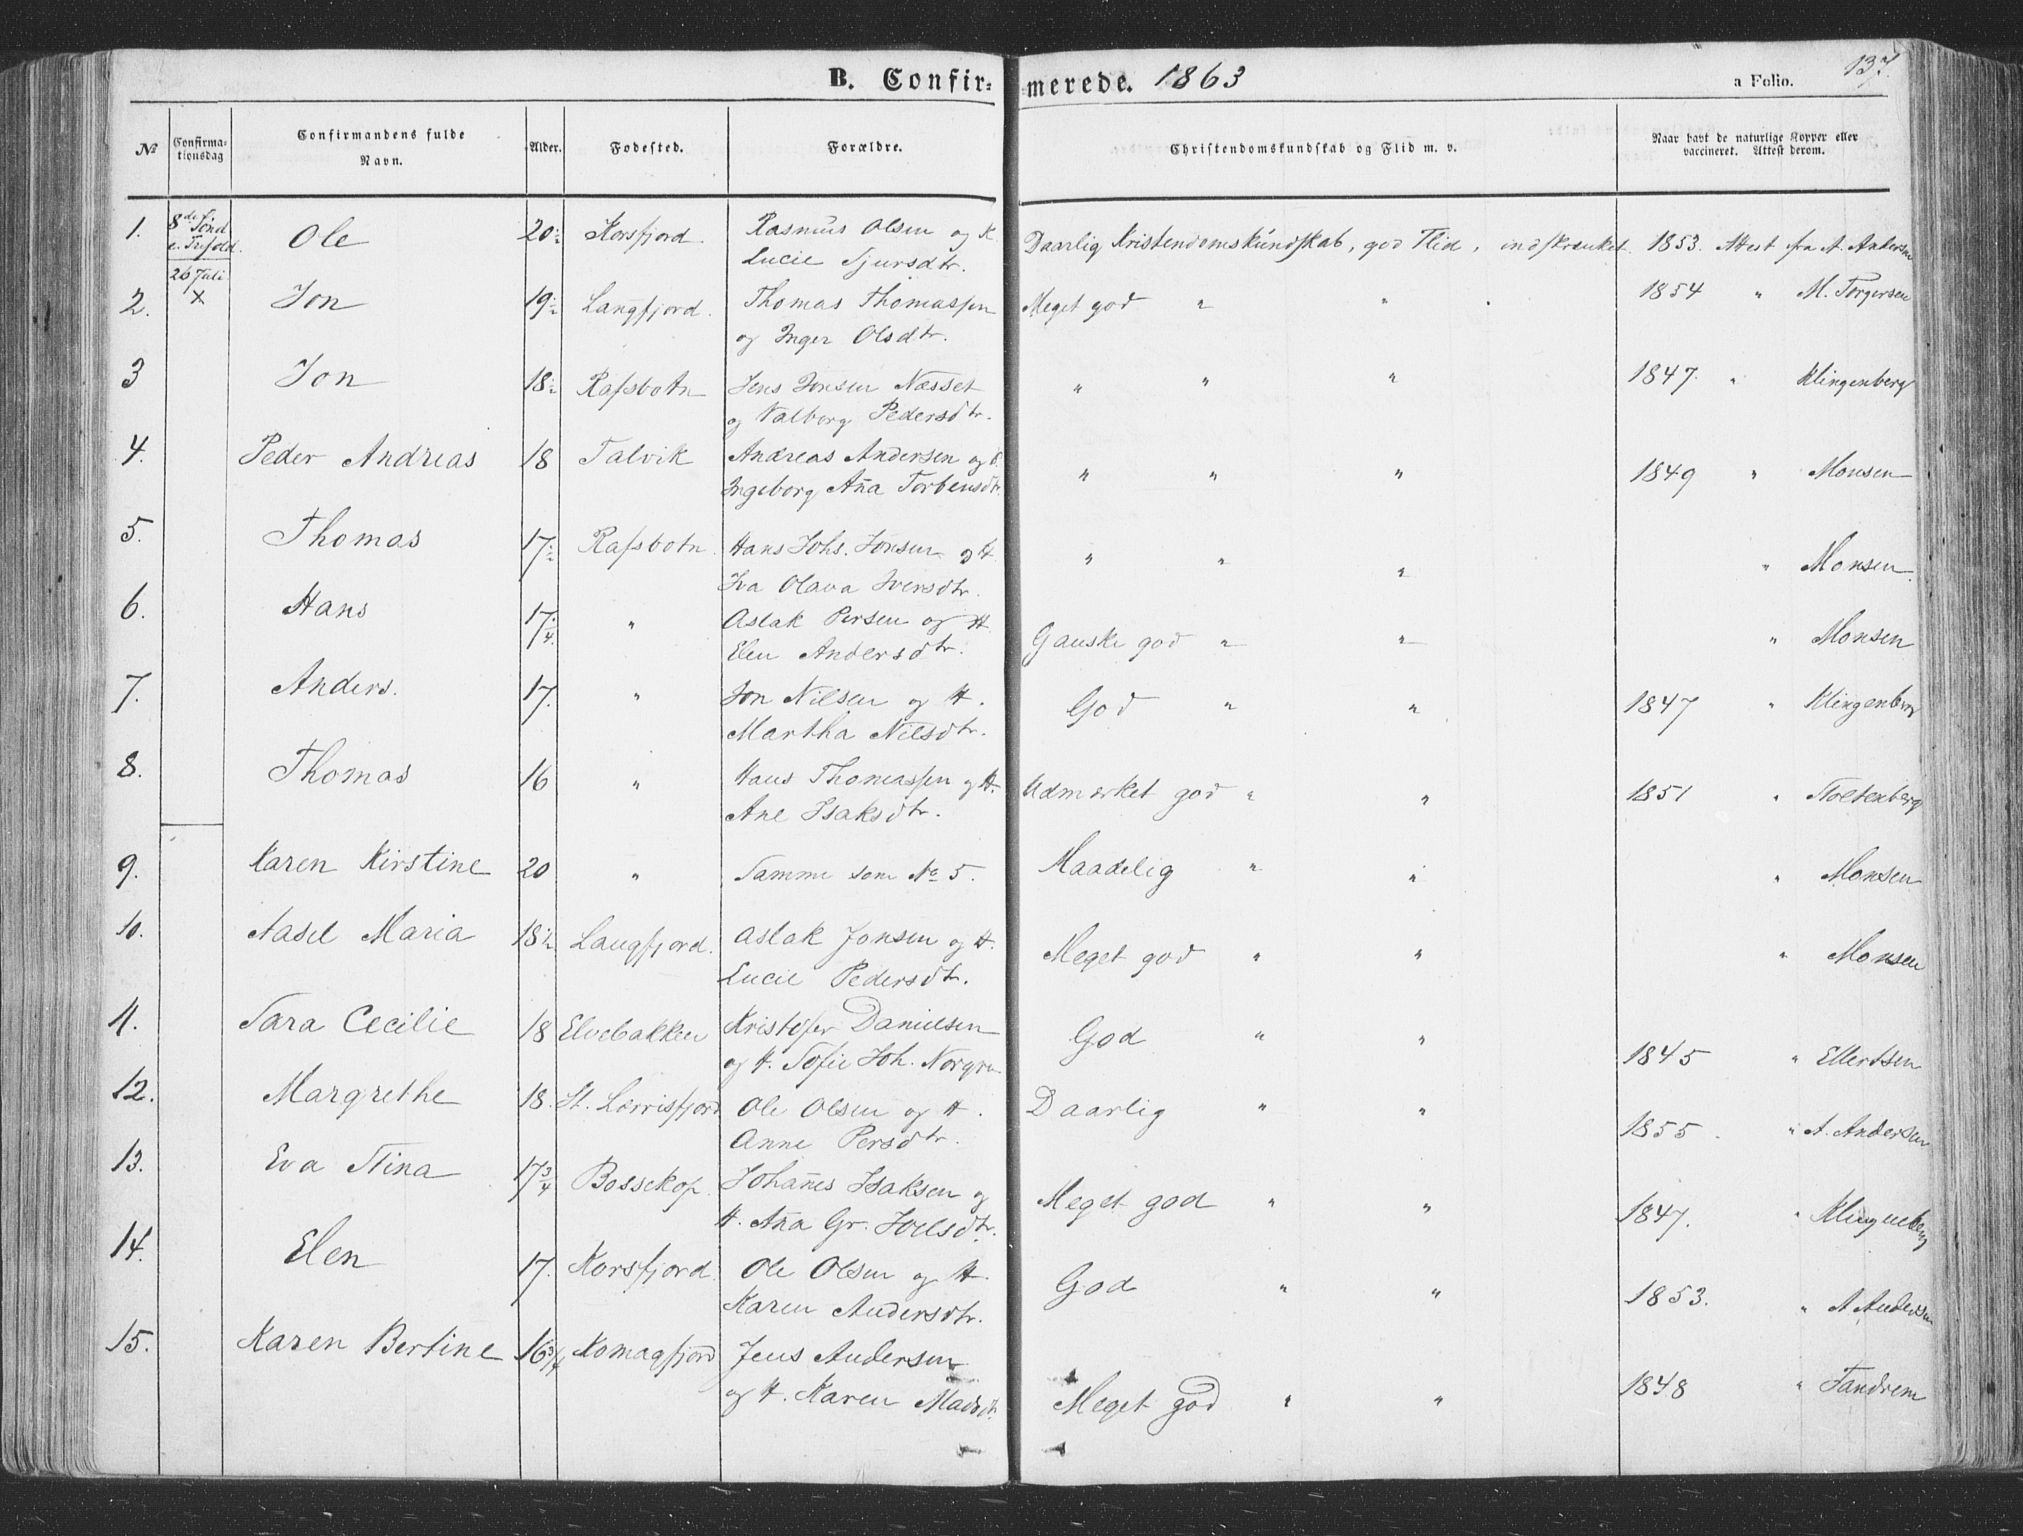 B. Confir=merede. 1863
137.
a Folio.
No Confirmationsdag Confirmandens fulde Navn. Alder. Fodested. Forældre. Christendomskundskab og Flid m. v. Naar havt de naturlige Kopper eller vaccineret. Attest derom.
1. 8de Sönd. e. Trefold. Ole 20 Korsfjord Rasmus Olsen og Daarlig Kristendomskundskab, god Flid, indskrænket. 1853. Attest fra A. Andersen
Lucie Sjursdtr.
26 Juli
x
2. Jon 19 Langfjord. Thomas Thomassen Meget god " " 1854 " M. Torgersen
og Inger Olsdtr.
3 Jon 18 Rafsbotn Jens Jonsen Næsset " " " 1847. " Klingenberg
og Valborg Pedersdtr.
4. Peder Andreas 18 Talvik Andreas Andersen og " " " 1849 " Monsen
Ingeborg Ana Torbensdtr.
5. Thomas 17 Rafsbotn. Hans Johs. Jonsen og H. " " " " Monsen.
Iva Olava Iversdtr.
6. Hans 17 " Aslak Persen og H. Ganske god " " " Monsen
Elen Andersdtr.
7. Anders. 17. " Jon Nilsen og H. God " " 1847 " Klingenberg
Martha Nilsdtr.
8. Thomas 16 " Hans Thomassen og H. Udmærket god " " 1851 " Stoltenberg
Ane Isaksdtr.
9. Karen Kirstine 20 " Samme som No 5. Maadelig " " " Monsen
10. Aasel Maria 18 1/2 Langfjord. Aslak Jonsen og H. Meget god " " " Monsen
Lucie Pedersdtr.
11. Sara Cecilie 18 Elvebakken Kristofer Danielsen God " " 1845 " Ellertsen
og H. Sofie Joh. Norgren
12. Margrethe 18. St. Lerrisfjord Ole Olsen og H. Daarlig " " 1855. " A. Andersen
Anne Persdtr.
13. Eva Stina 17 3/4 Bossekop. Johanes Isaksen og Meget god " " 1847. " Klingenberg
H. Ana Gr. Joelsdtr.
14. Elen 17. Korsfjord. Ole Olsen og H. God " " 1853. " A Andersen
Karen Andersdtr.
15. Karen Bertine 16 3/4 Komagfjord Jens Andersen Meget god " " 1848 " Tandrem
og H. Karen Madsdtr.